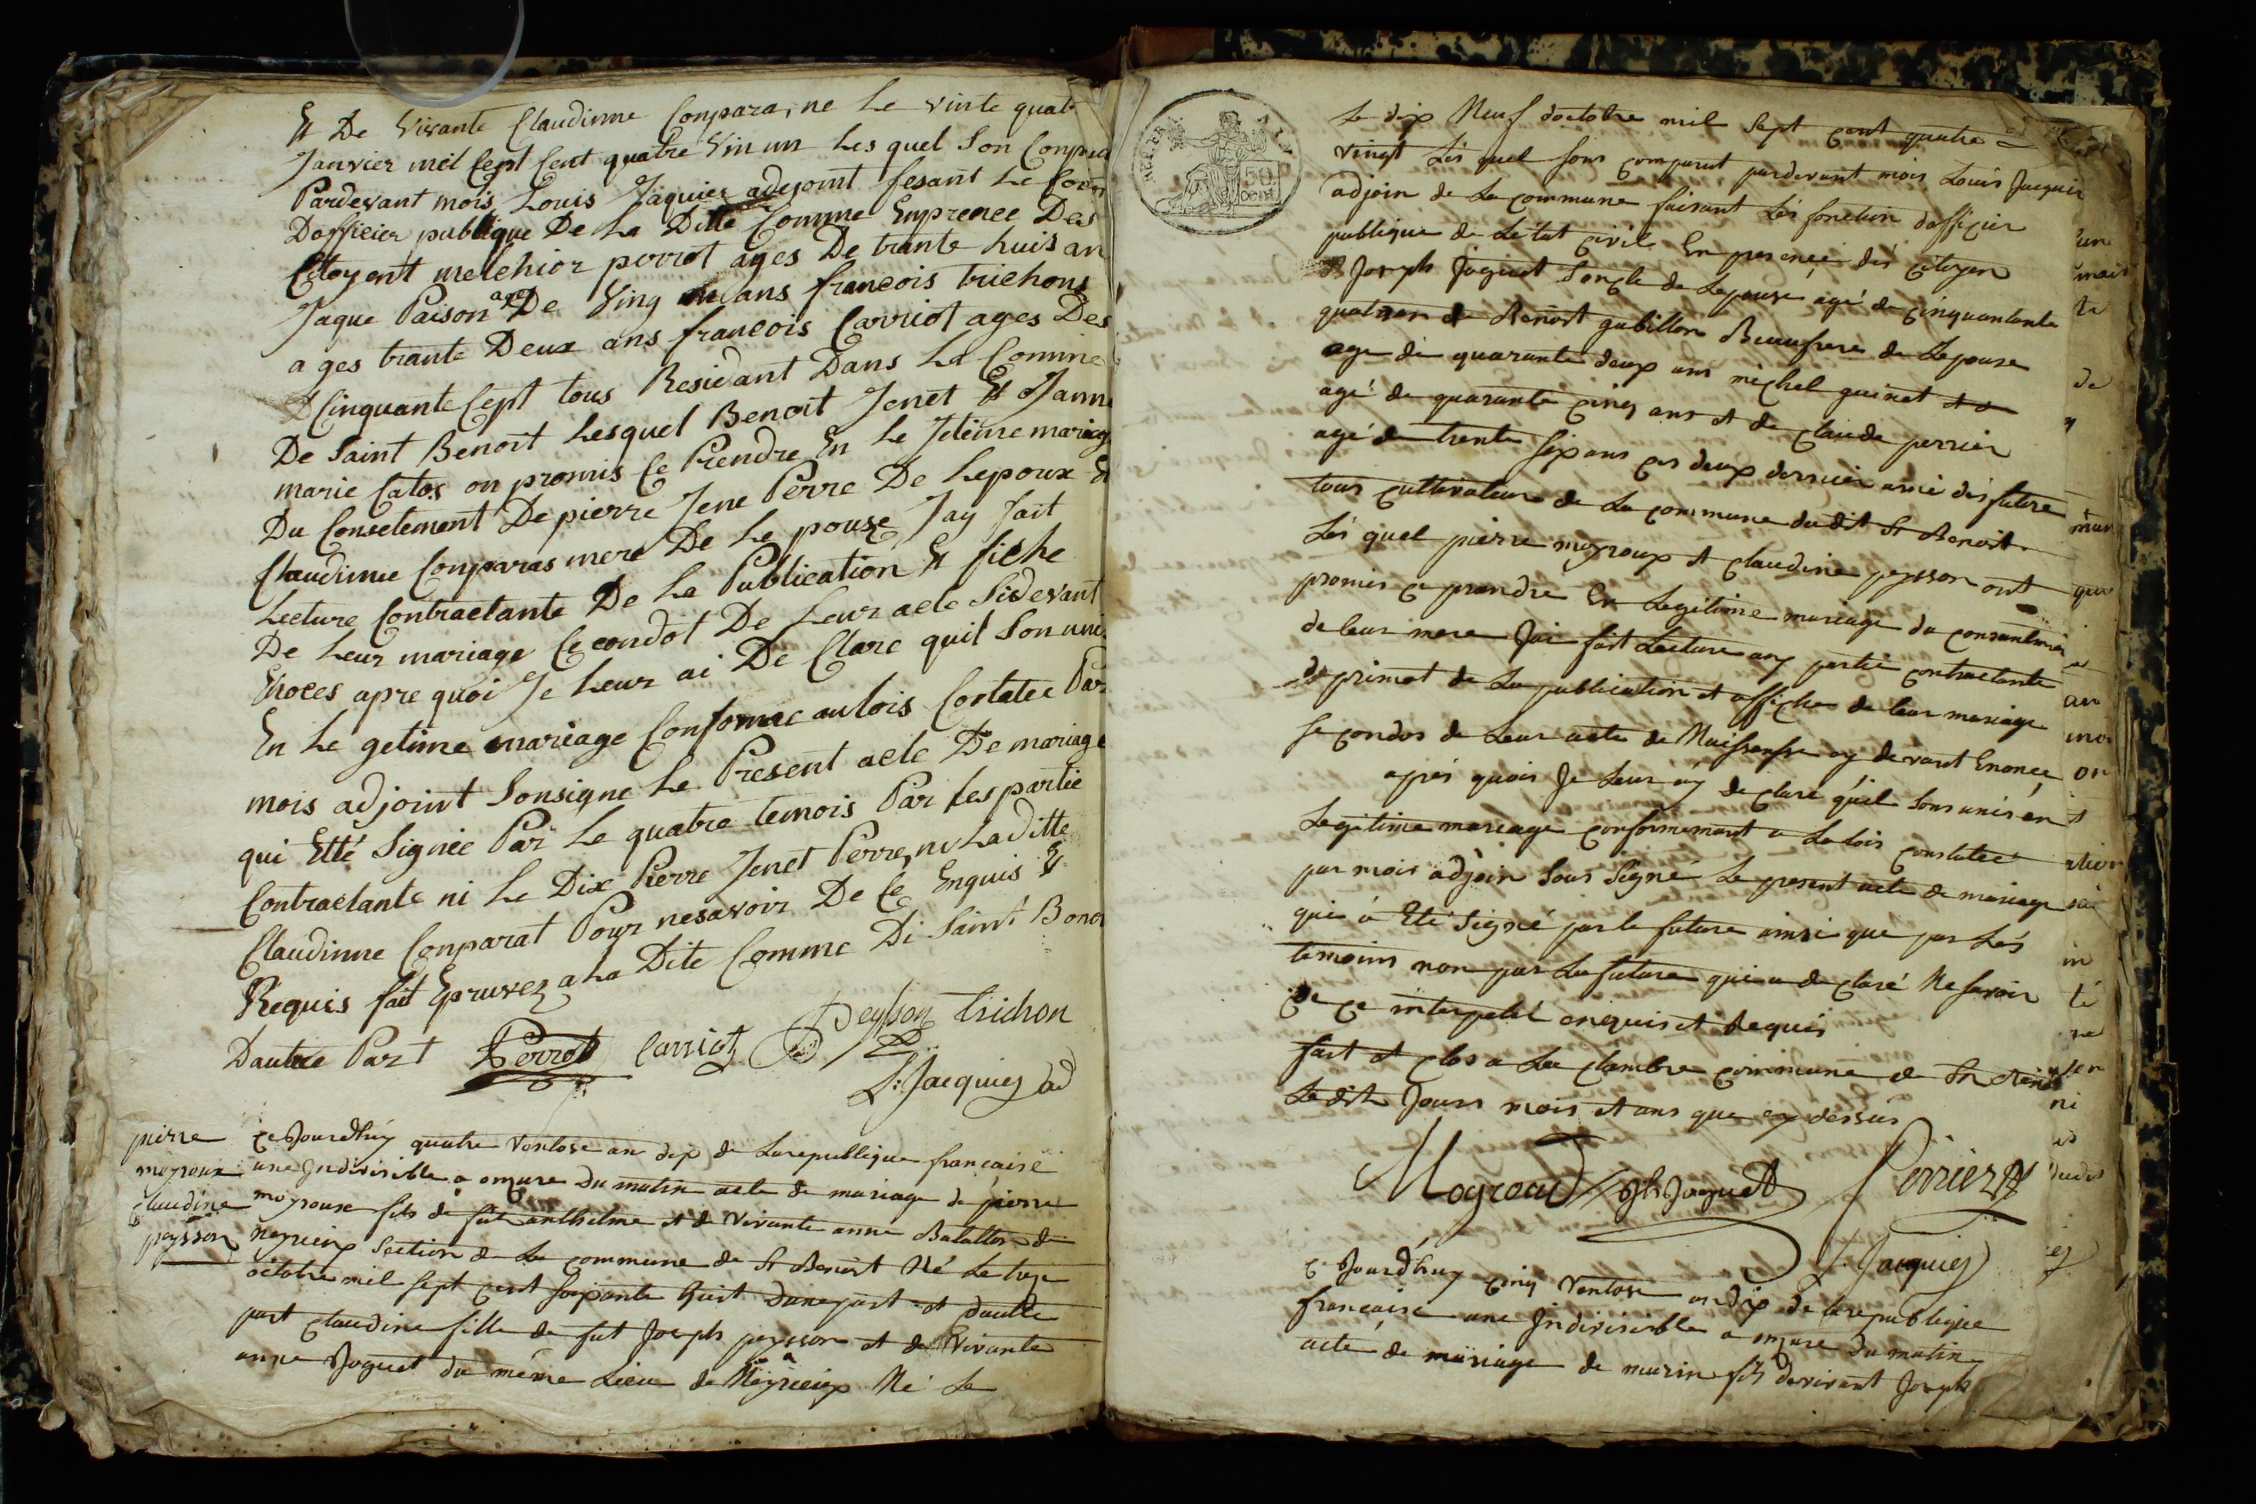 Et De Vivante Claudinne Conpara, ne Le vinte quat
Janvier mil Cept Cent quatre Vin un Les quel Son Conpa
Pardevant mois Louis Jaquier adejoint fesant Le fon
Dofficier publique De La Ditte Comme Enprence Des
Citoyent melchior perrot ages De trante huis an
Jaque Paison ages De Ving ans francois trichons
ages trante Deux ans francois Carriot ages Des
Cinquante Cept tous Residant Dans La Comme
De Saint Benoit Lesquel Benoit Jenet Et Janne
marie Catos on promis Ce Prendre En Le Jetime mariag
Du Consetement De pierre Jene Perre De Lepoux Et
Claudinne Conparas mere De Le pouse Jay fait
Lecture Contractante De La Publication Et fiche
De Leur mariage Ce condot De Leur acte Sidevant
Enoces apre quoi Je Leur ai De Clare quil Son uni
En Le getime mariage Conforme au lois Contatee Par
mois adjoint Sonsigne Le Present acte De mariage
qui Etté Signée Par Le quatre temois Par Les partie
Contractante ni Le Dix Pierre Jenet Perre, ni La ditte
Claudinne Conparat Pour nesavoir De Ce Enquis Et
Requis fait Epruvez a La Dite Comme Di Saint Bono
Dautre Part Perrot Carriot Peyson trichon
L: Jacquier ad
pierre
moyroux
claudine
peysson
ce Jourdhuy quatre Ventose an dix de La republique francaise
une Indivisible a onzure du matin acte de mariage de pierre
moyroux fils de fut anthelme et de Vivante anne Batallon de
neyrieux section de La commune de St Benoit Né Le treze
octobre mil sept cent soixante huit dune part et daultre
part claudine fille de fut Joseph peysson et de Vivante
anne Joguet du même Lieu de Neyrieux Né Le
Le dix Neuf doctobre mil sept cent quatre
vingt Les quel sons comparut pardevant mois Louis Jacquier
adjoin de La commune faisant Les fonction dofficier
publique de Letat civil En presence des citoyen
Joseph Joguet Loncle de Lepouse agé de cinquante
quatre ans et Benoit gubillon Beaufrere de Lepouse
age de quarante deux ans michel guinet
agé de quarante cinq ans et de claude perrier
agé de trente six ans ces deux dernier amie des future
tous cultivateur de La commune dudit St Benoit
Les quel pierre moyroux et claudine peysson ont
promis ce prendre En Legitime mariage du consentement
de leur mere Jai fait Lecture aux partie contractante
de primot de La publication et affiche de leur mariage
secondos de Leur acte de Naissensse cy devant Enoncé
aprés quois Je Leur ay declaré quel sons unis en
Legitime mariage conformemant a La lois constatée
par mois adjoin sous signé Le present acte de mariage
qui à Eté signié par le future ainsi que par Lés
temoins non par La future qui a declaré Ne savoir
de ce interpelé enquis et Requis
fait et clos a La chambre commune de St Benoit
Ledit Jours mois et ans que cy dessus
Moyroud Jh Joguet Perrier
L. Jacquier
ce Jourdhuy cinq Ventose an dix de la republique
francaise une Indivisible a onzure du matin
acte de mariage de marin fils de vivant Joseph